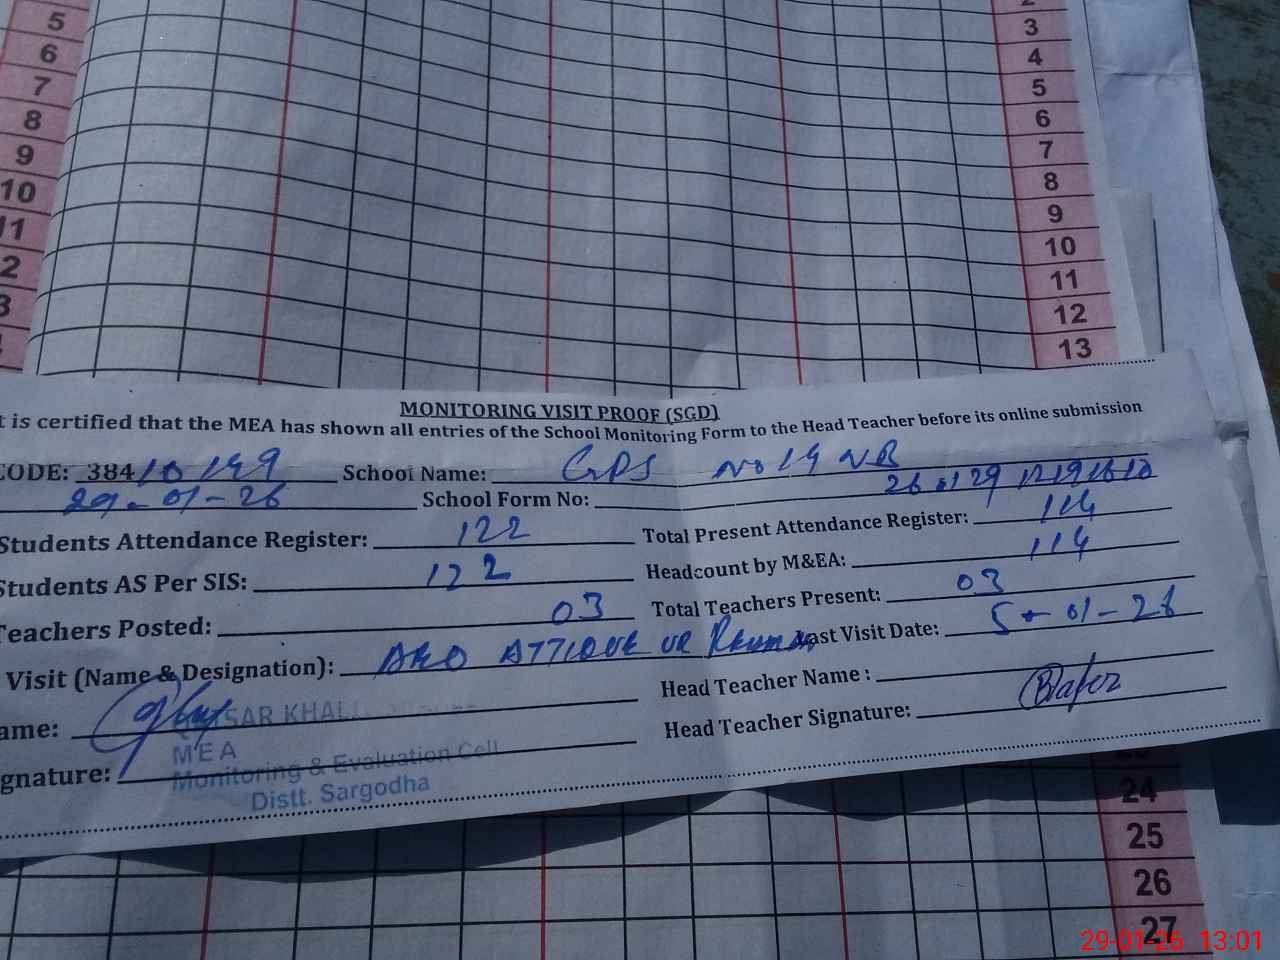 5
6
7
8
9
10
11
2
3
3
4
5
6
7
8
9
10
11
12
13
MONITORING VISIT PROOF (SGD)
t is certified that the MEA has shown all entries of the School Monitoring Form to the Head Teacher before its online submission
CODE: 38410199 School Name: GPS No 19 NB
29-01-26 School Form No:
Students Attendance Register: 122 Total Present Attendance Register: 114
Students AS Per SIS: 122 Headcount by M&EA: 114
Teachers Posted: 03 Total Teachers Present: 03
Visit (Name & Designation): ATTIQUE UR Last Visit Date: 5-01-26
ame: Head Teacher Name :
gnature: Head Teacher Signature:
SAR KHAL
MEA
Monitoring & Evaluation Cell
Distt. Sargodha
24
25
26
27
29-01-26 13:01